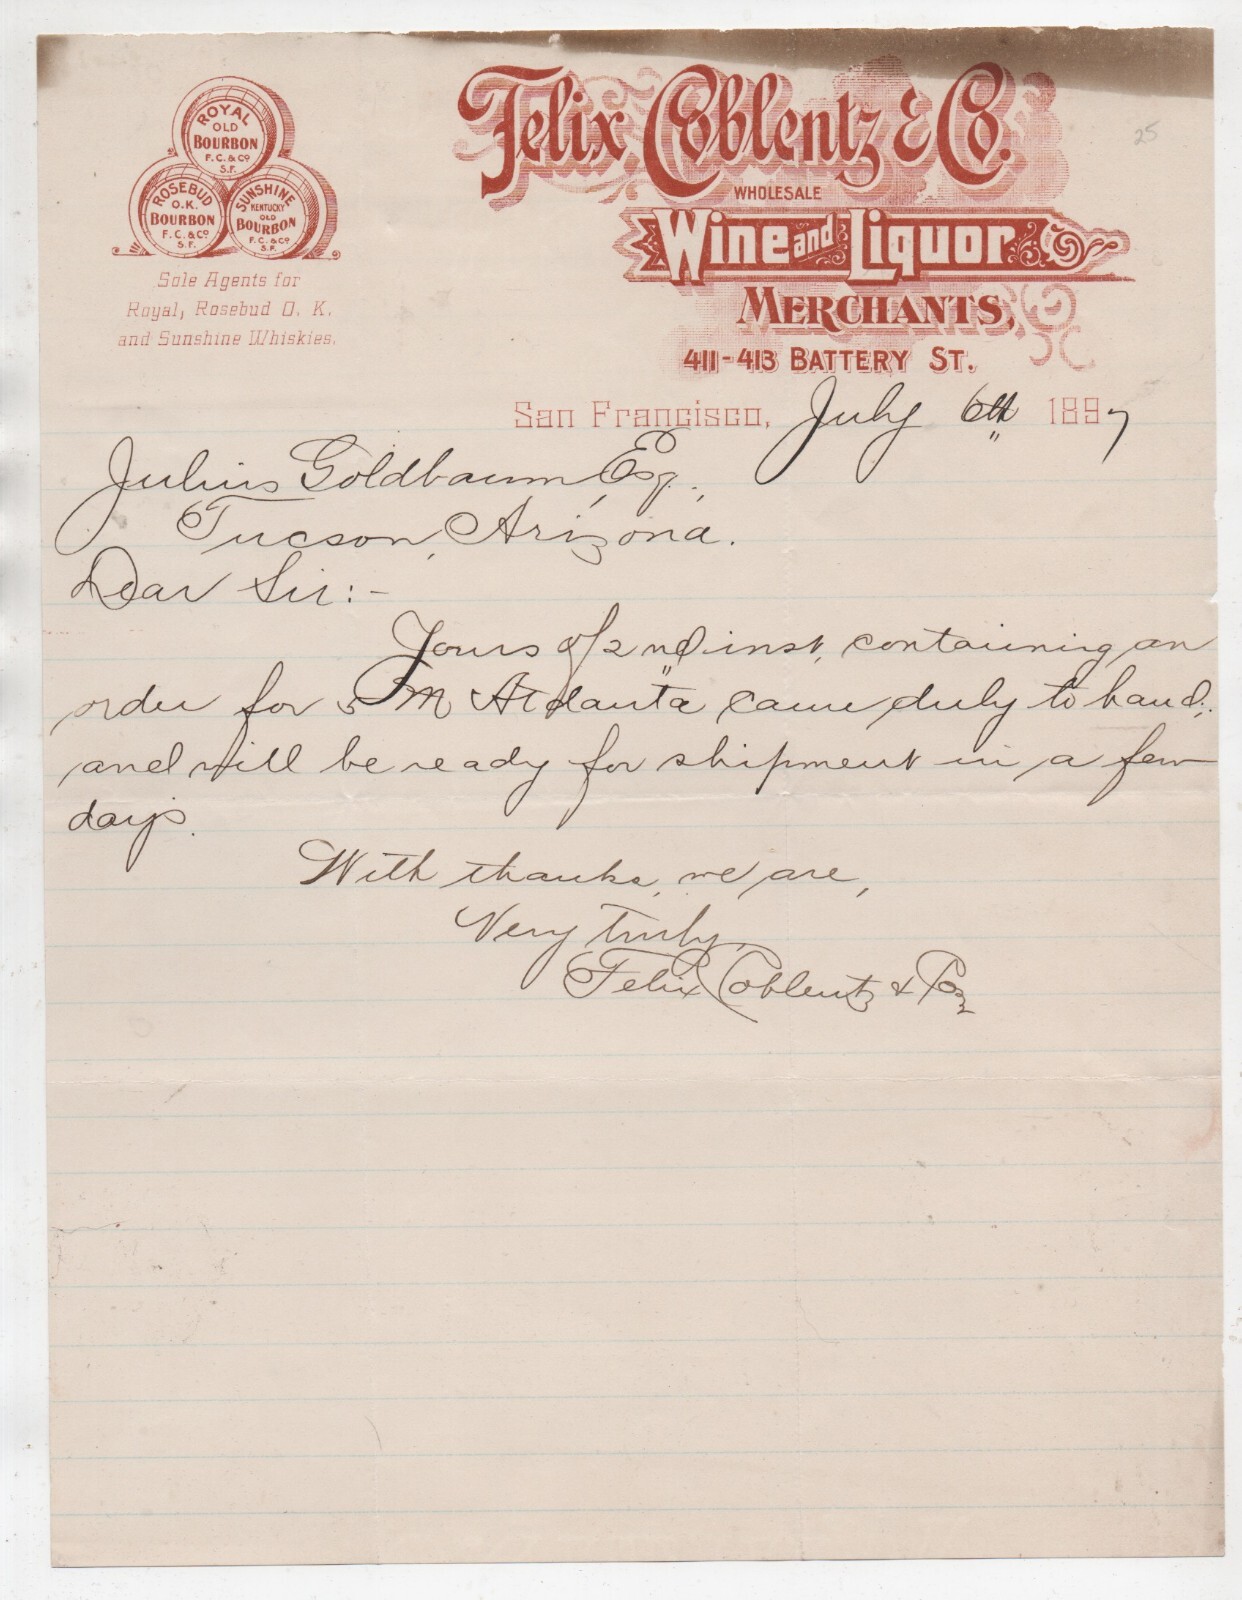 ROYAL
OLD
BOURBON
F. C. & Co
S.F.
ROSEBUD
O.K.
BOURBON
F. C. & Co
S.F.
SUNSHINE
KENTUCKY
OLD
BOURBON
F. C. & Co
S.F.
Sole Agents for
Royal, Rosebud O. K.
and Sunshine Whiskies.
Felix Coblentz & Co.
WHOLESALE
Wine and Liquor
MERCHANTS,
411-413 BATTERY ST.
25
San Francisco, July 6th 1897
Julius Goldbaum, Esq.,
Tucson, Arizona.
Dear Sir:-
Yours of 2nd inst, containing an
order for 5 M Atlanta came duly to hand,
and will be ready for shipment in a few
days.
With thanks, we are,
Very truly,
Felix Coblentz & Co